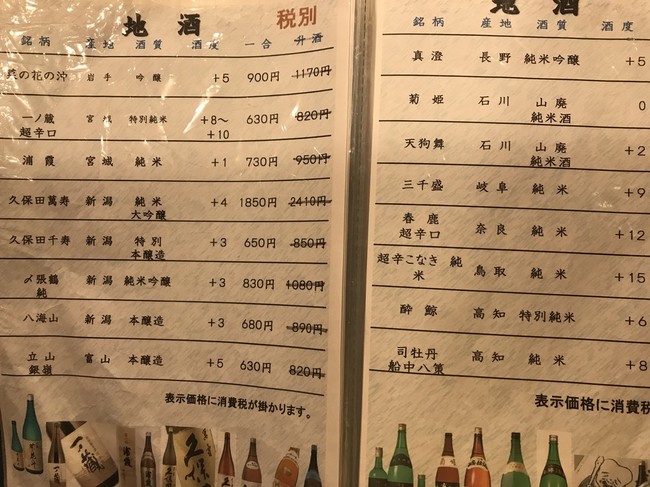 地酒 税別
銘柄 産地 酒質 酒度 一合 升酒
菜の花の沖 岩手 吟醸 +5 900円 1170円
一ノ蔵 宮城 特別純米 +8～ 630円 820円
超辛口 +10
浦霞 宮城 純米 +1 730円 950円
久保田萬寿 新潟 純米 +4 1850円 2410円
大吟醸
久保田千寿 新潟 特別 +3 650円 850円
本醸造
〆張鶴 新潟 純米吟醸 +3 830円 1080円
純
八海山 新潟 本醸造 +3 680円 890円
立山 富山 本醸造 +5 630円 820円
銀嶺
表示価格に消費税が掛かります。
地酒
銘柄 産地 酒質 酒度
真澄 長野 純米吟醸 +5
菊姫 石川 山廃 0
純米酒
天狗舞 石川 山廃 +2
純米酒
三千盛 岐阜 純米 +9
春鹿 奈良 純米 +12
超辛口
超辛こなき 純 鳥取 純米 +15
米
酔鯨 高知 特別純米 +6
司牡丹 高知 純米 +8
船中八策
表示価格に消費税